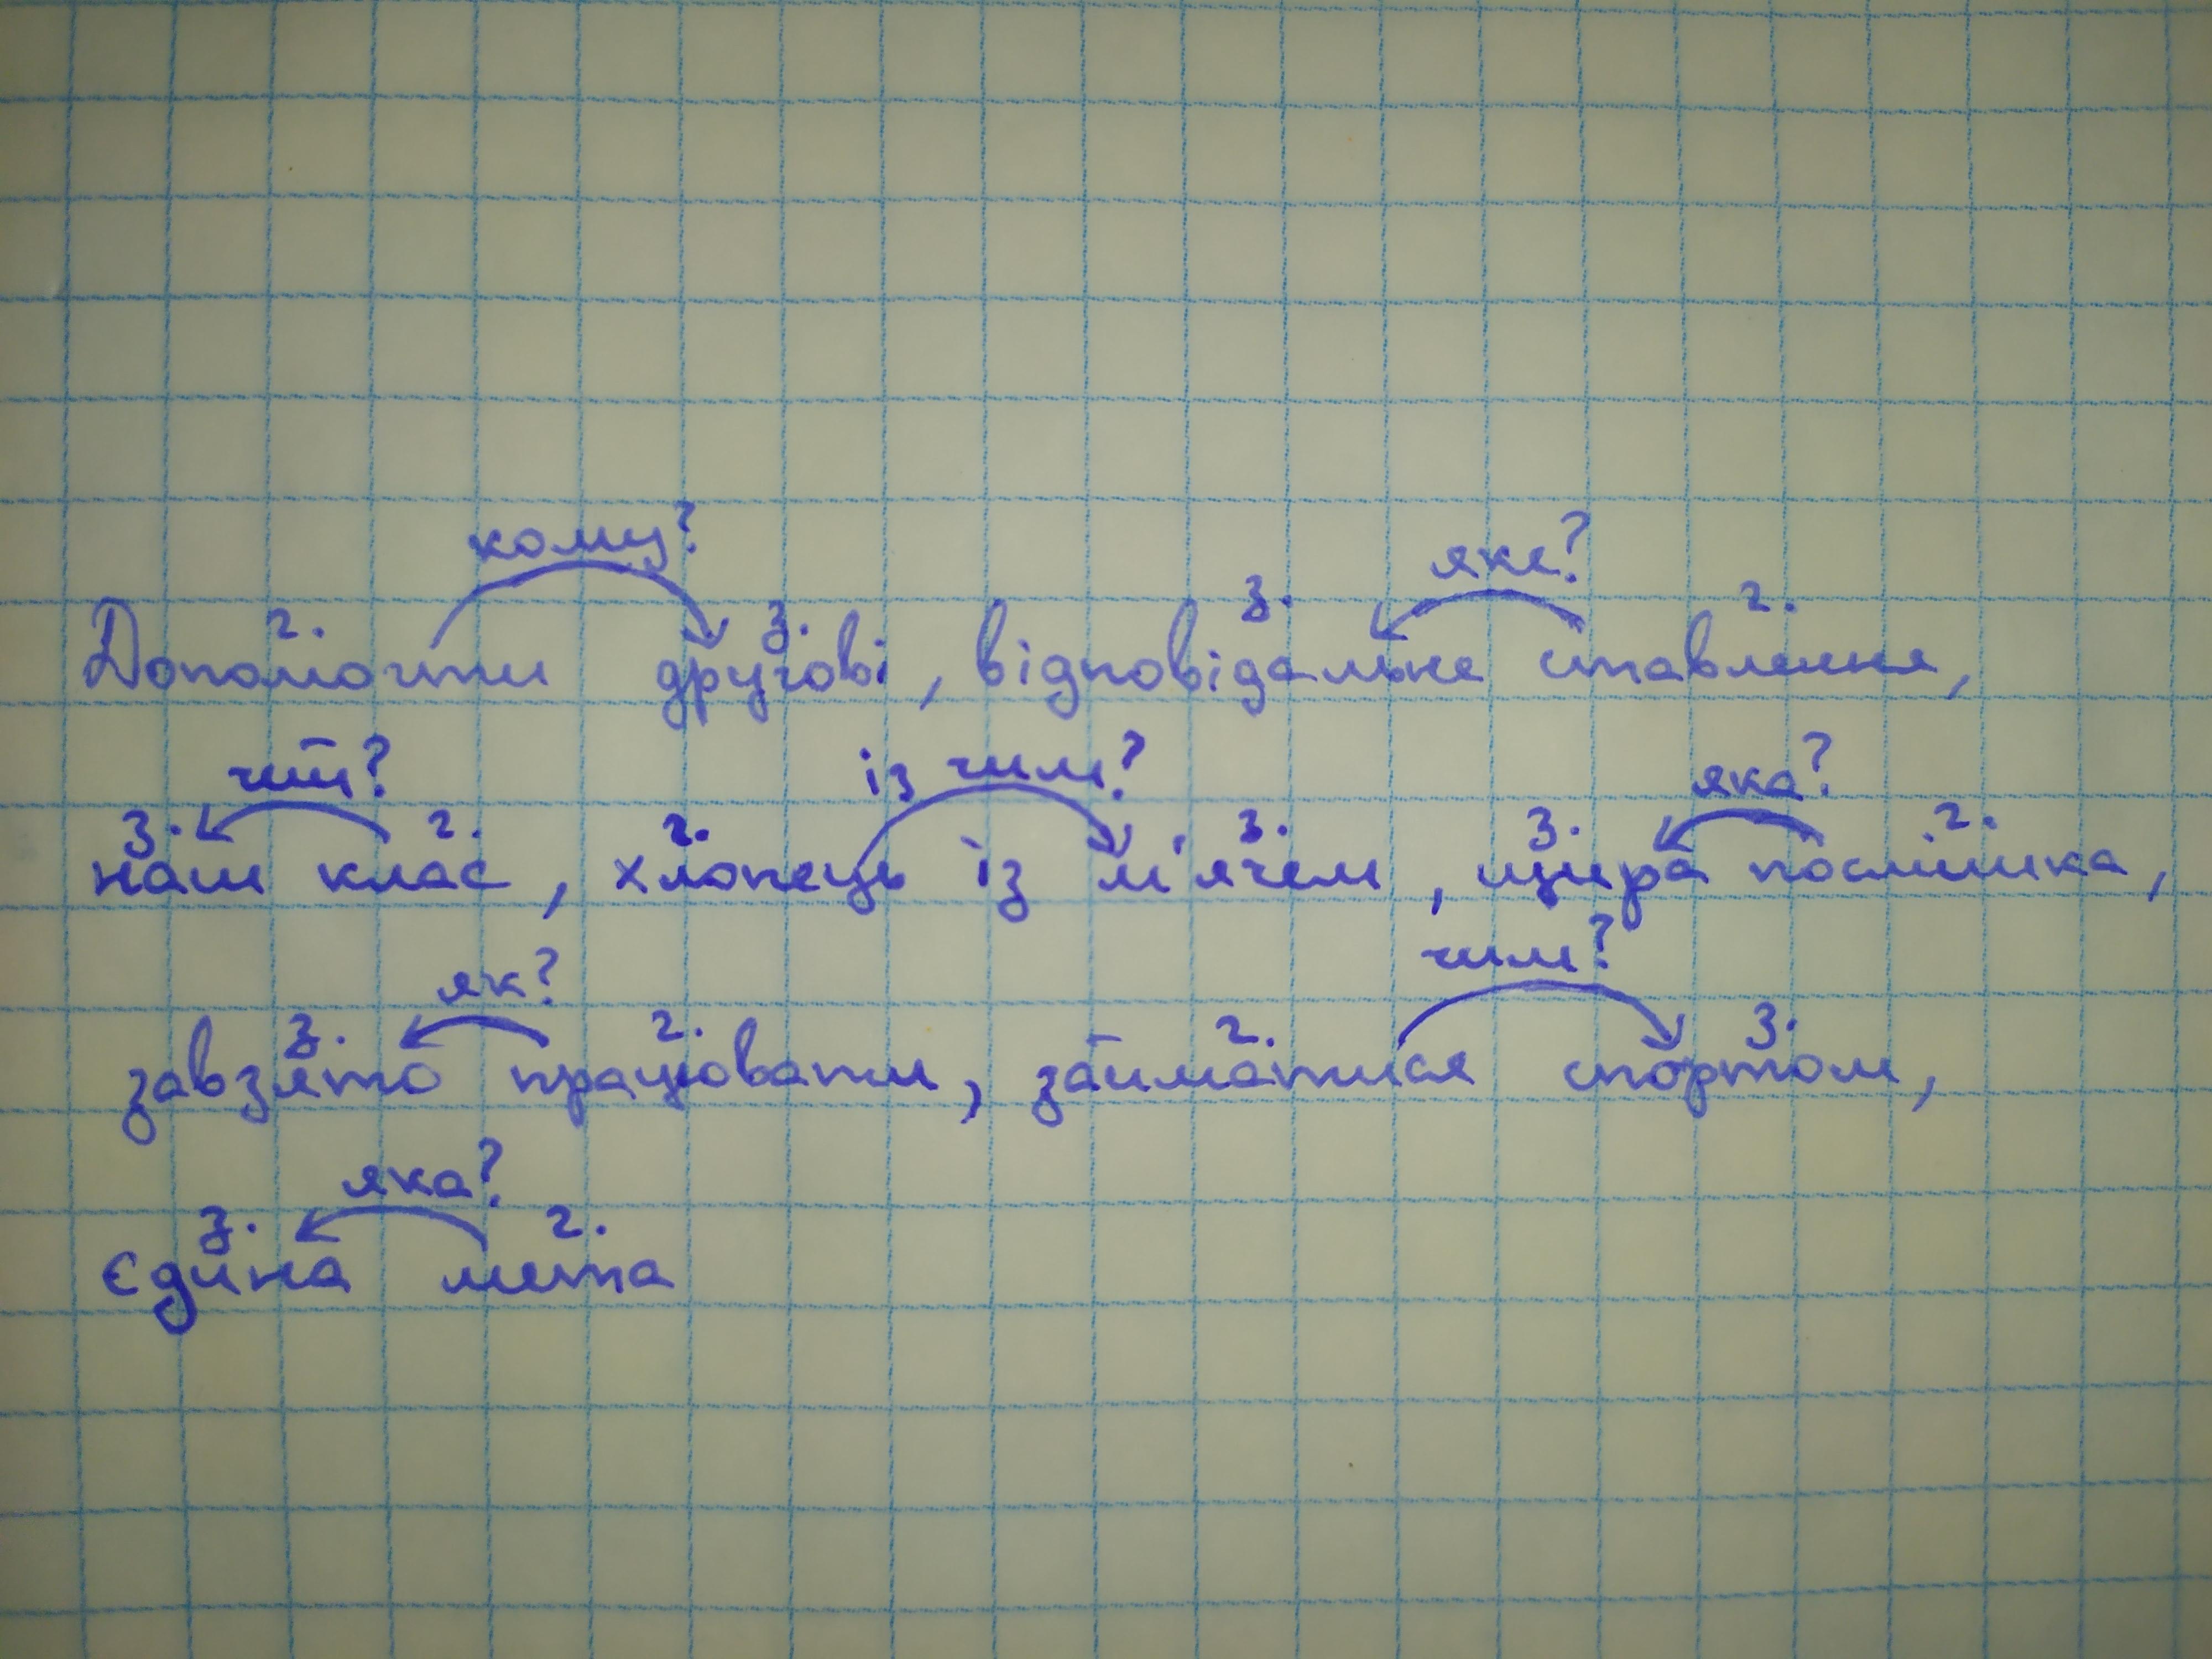 кому? яке?
г. з. з. г.
Допомогти другові, відповідальне ставлення,
чий? із чим? яка?
з. г. г. з. з. г.
наш клас, хлопець із м'ячем, щира посмішка,
як? чим?
з. г. г. з.
завзято працювати, займатися спортом,
яка?
з. г.
єдина мета